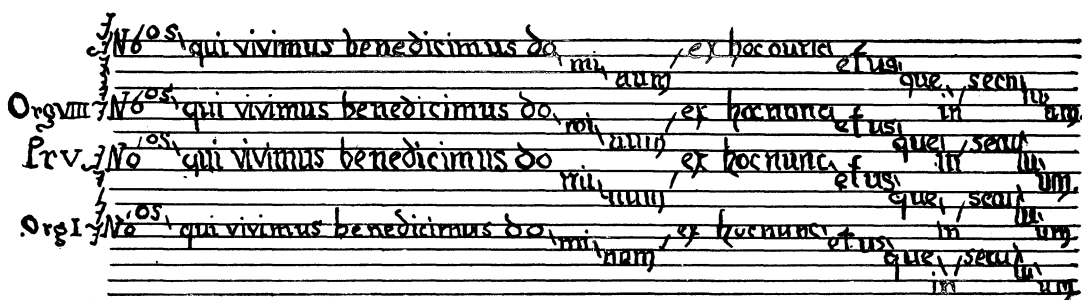 No os qui vivimus benedicimus do mi num ex hoc nunc et us que in secu lu um.
Org VIII No os qui vivimus benedicimus do mi num ex hoc nunc et us que in secu lu um.
Pr V No os qui vivimus benedicimus do mi num ex hoc nunc et us que in secu lu um.
Org I No os qui vivimus benedicimus do mi num ex hoc nunc et us que in secu lu um.